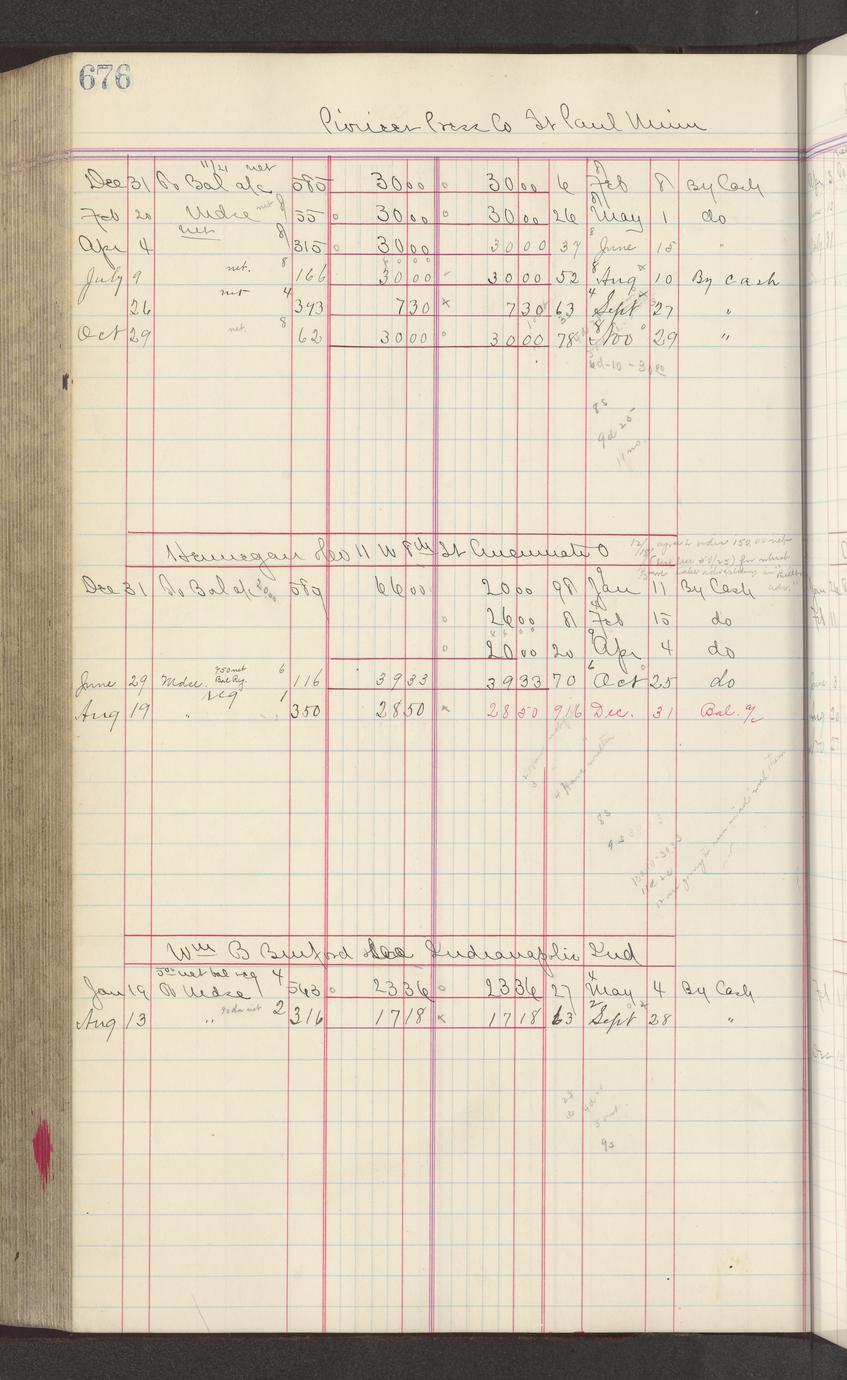 676
Pioneer Press Co St Paul Minn
11/21 net
Dec 31 To Bal a/c 585 30 00 30 00 6 8 Feb 8 By Cash
Feb 20 Mdse net 8 55 30 00 30 00 26 8 May 1 do
Apr 4 net 8 315 30 00 30 00 37 8 June 15 "
July 9 net. 8 166 30 00 30 00 52 8 Aug 10 By cash
26 net 4 393 7 30 x 7 30 63 4 Sept 27 "
Oct 29 net. 8 62 30 00 30 00 78 8 Nov 29 "
6d-10-30 00
8s
9d 25
11 mo
Hennegan & Co 11 W 8th St Cincinnati O
Dec 31 To Bal a/c 589 66 00 20 00 98 9 Jan 11 By Cash
26 00 81 Feb 15 do
20 00 20 9 Apr 4 do
June 29 Mdse. 750 net Bal Reg. 6 116 39 33 39 33 70 6 Oct 25 do
Aug 19 " reg 1 350 28 50 x 28 50 916 Dec. 31 Bal. a/c
8s
9s
Wm B Burford Indianapolis Ind
500 net bal reg
Jan 19 To Mdse 4 543 23 36 23 36 27 4 May 4 By Cash
Aug 13 " 2 316 17 18 x 17 18 63 2 Sept 28 "
9s